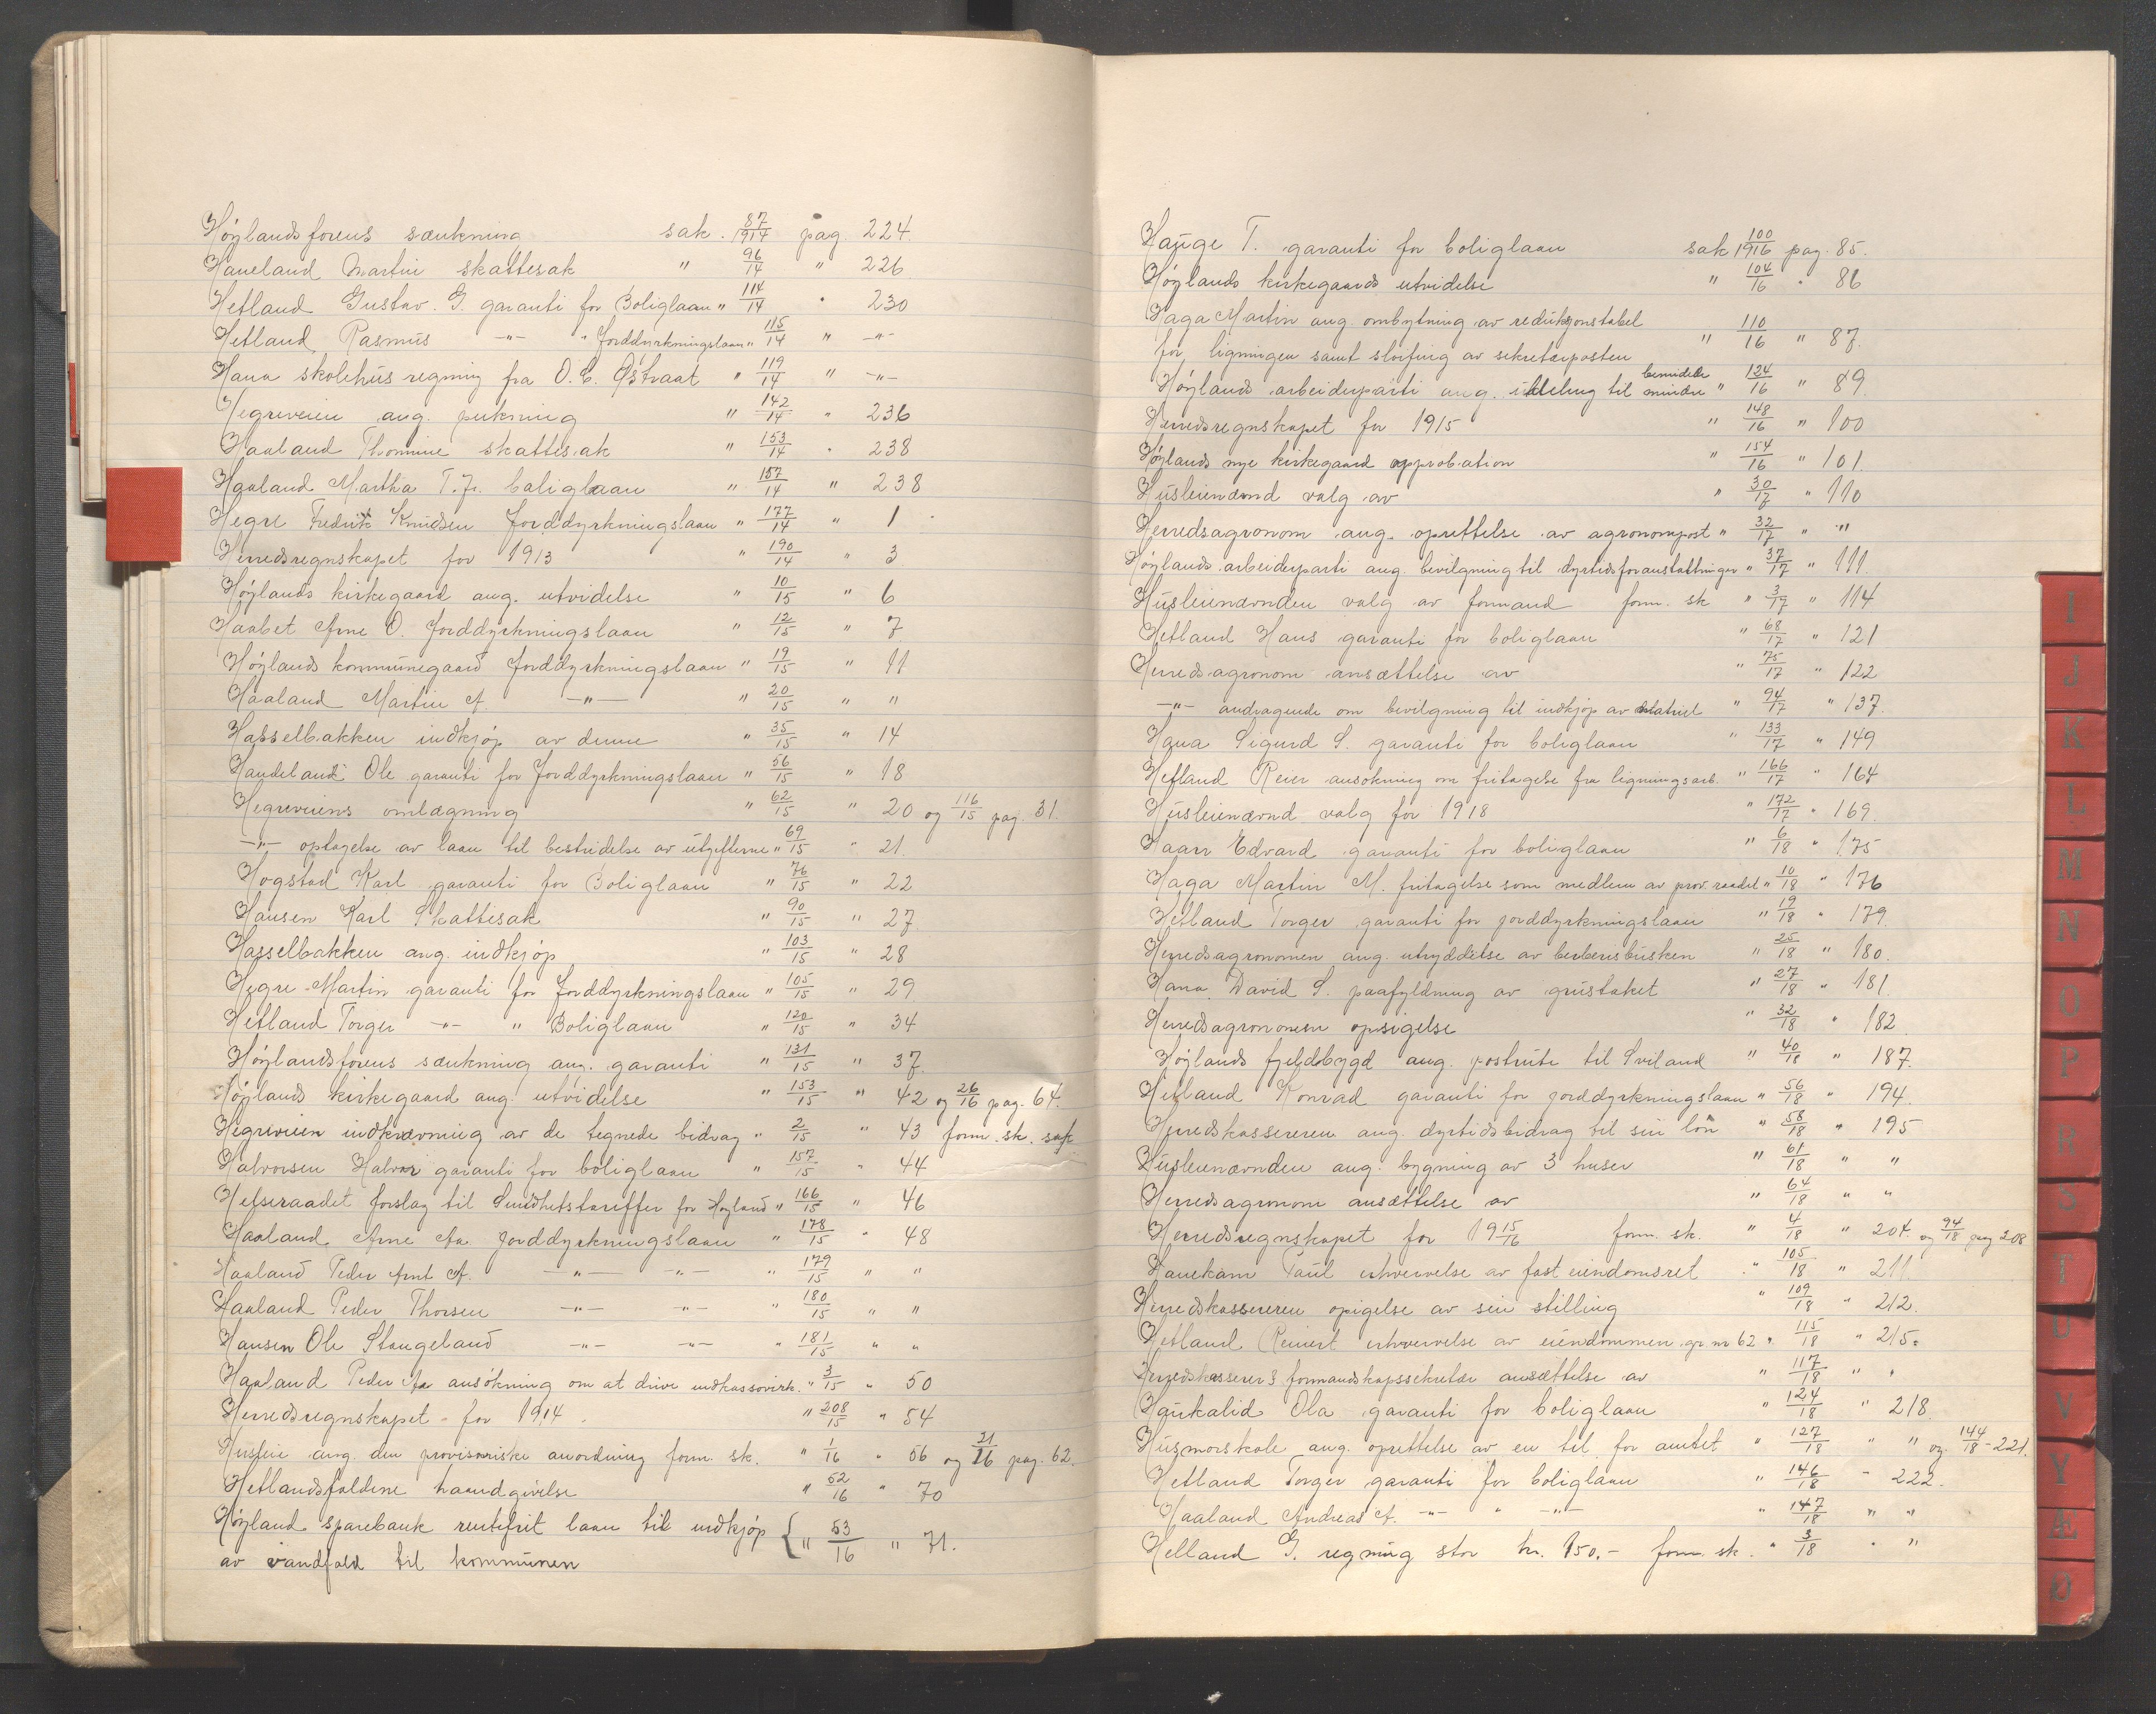 Höylandsforens sænkning sak. 87/1914 pag. 224.
Haneland Martin skattesak " 96/14 " 226
Hetland Gustav. G. garanti for Boliglaan " 114/14 " 230
Hetland Rasmus -"- " Jorddyrkningslaan " 115/14 " -"-
Hana skolehus regning fra O. C. Østraat " 119/14 " -"-
Hegreveien ang. pukning " 142/14 " 236
Haaland Thomine skattesak " 153/14 " 238
Haaland Martha T. Jr. boliglaan " 157/14 " 238
Hegre Fredrik Knudsen Jorddyrkningslaan " 177/14 " 1
Herredsregnskapet for 1913 " 190/14 " 3
Höylands kirkegaard ang. utvidelse " 10/15 " 6
Haabet Arne O. Jorddyrkningslaan " 12/15 " 7
Höylands kommunegaard Jorddyrkningslaan " 19/15 " 11
Haaland Martin A. -"- " 20/15 " "
Hasselbakken indkjøp av denne " 35/15 " 14
Handeland Ole garanti for Jorddyrkningslaan " 56/15 " 18
Hegreveiens omlægning " 62/15 " 20 og 116/15 pag. 31.
-"- optagelse av laan til bestridelse av utgifterne " 69/15 " 21.
Hogstad Karl garanti for Boliglaan " 76/15 " 22
Hansen Karl Skattesak " 90/15 " 27
Hasselbakken ang. indkjøp " 103/15 " 28
Hegre Martin garanti for Jorddyrkningslaan " 105/15 " 29
Hetland Torger -"- " Boliglaan " 120/15 " 34
Höylandsforens sænkning ang. garanti " 131/15 " 37
Höylands kirkegaard ang. utvidelse " 153/15 " 42 og 26/16 pag. 64.
Hegreveien indkrævning av de tegnede bidrag " 2/15 " 43 form. sk. sak
Halvorsen Halvar garanti for boliglaan " 157/15 " 44
Helseraadet forslag til Sundhetstariffer for Høyland " 166/15 " 46
Haaland Arne Aa. Jorddyrkningslaan " 178/15 " 48
Haaland Peder Arnt A. -"- -"- " 179/15 " "
Haaland Peder Thorsen -"- -"- " 180/15 " "
Hansen Ole Stangeland -"- -"- " 181/15 " "
Haaland Peder Aa ansökning om at drive indkassovirk. " 3/15 " 50
Herredsregnskapet for 1914. " 208/15 " 54
Husleie ang. den provisoriske anordning form. sk. " 1/16 " 56 og 21/16 pag. 62.
Hetlandsfaldene haandgivelse " 52/16 " 70
Höyland sparebank rentefrit laan til indkjøp { " 53/16 " 71.
av vandfald til kommunen
Hauge T. garanti for boliglaan sak 100/1916 pag. 85.
Höylands kirkegaards utvidelse " 104/16 " 86
Haga Martin ang. ombytning av reduksjonstabel
for ligningen samt sløifing av sekretærposten " 110/16 " 87.
Höylands arbeiderparti ang. utdeling til mindre bemidlede " 124/16 " 89.
Herredsregnskapet for 1915 " 148/16 " 100
Höylands nye kirkegaard approbation " 154/16 " 101.
Husleienævnd valg av " 30/17 " 110
Herredsagronom ang. oprettelse av agronompost " 32/17 " "
Höylands arbeiderparti ang. bevilgning til dyrtidsforanstaltninger " 37/17 " 111
Husleienævnden valg av formand form. sk " 3/17 " 114
Hetland Hans garanti for boliglaan " 68/17 " 121
Herredsagronom ansættelse av " 75/17 " 122
-"- andragende om bevilgning til indkjøp av materiel " 94/17 " 137.
Hana Sigurd S. garanti for boliglaan " 133/17 " 149
Hetland Reier ansøkning om fritagelse fra ligningsarb. " 166/17 " 164
Husleienævnd valg for 1918 " 172/17 " 169.
Haarr Edvard garanti for boliglaan " 6/18 " 175
Haga Martin M. fritagelse som medlem av prov. raadet " 10/18 " 176
Hetland Torger garanti for jorddyrkningslaan " 19/18 " 179.
Herredsagronomen ang. utryddelse av berberisbusken " 25/18 " 180.
Hana David S. paafyldning av grustaket " 27/18 " 181.
Herredsagronomen opsigelse " 32/18 " 182.
Höylands fjeldbygd ang. postrute til Sviland " 40/18 " 187.
Hetland Konrad garanti for jorddyrkningslaan " 56/18 " 194.
Herredskassereren ang. dyrtidsbidrag til sin lön " 58/18 " 195
Husleienævnden ang. bygning av 3 huser " 61/18 " "
Herredsagronom ansættelse av " 64/18 " "
Herredsregnskapet for 1915/16 form. sk. " 4/18 " 204. og 94/18 pag 208
Hanekam Paul erhvervelse av fast eiendomsret " 105/18 " 211.
Herredskassereren opigelse av sin stilling " 109/18 " 212.
Hetland Reinert erhvervelse av eiendommen gr. nr 62 " 115/18 " 215.
Herredskasserer & formandskapssekretær ansættelse av " 117/18 " "
Haukalid Ola garanti for boliglaan " 124/18 " 218
Husmorskole ang. oprettelse av en til for amtet " 127/18 " " og 144/18 - 221.
Hetland Torger garanti for boliglaan " 146/18 - 222.
Haaland Andreas A. -"- " -"- " 147/18 " "
Helland G. regning stor kr. 150.- form. sk. " 3/18 " "
I
J
K
L
M
N
O
P
R
S
T
U
V
Y
Æ
Ø